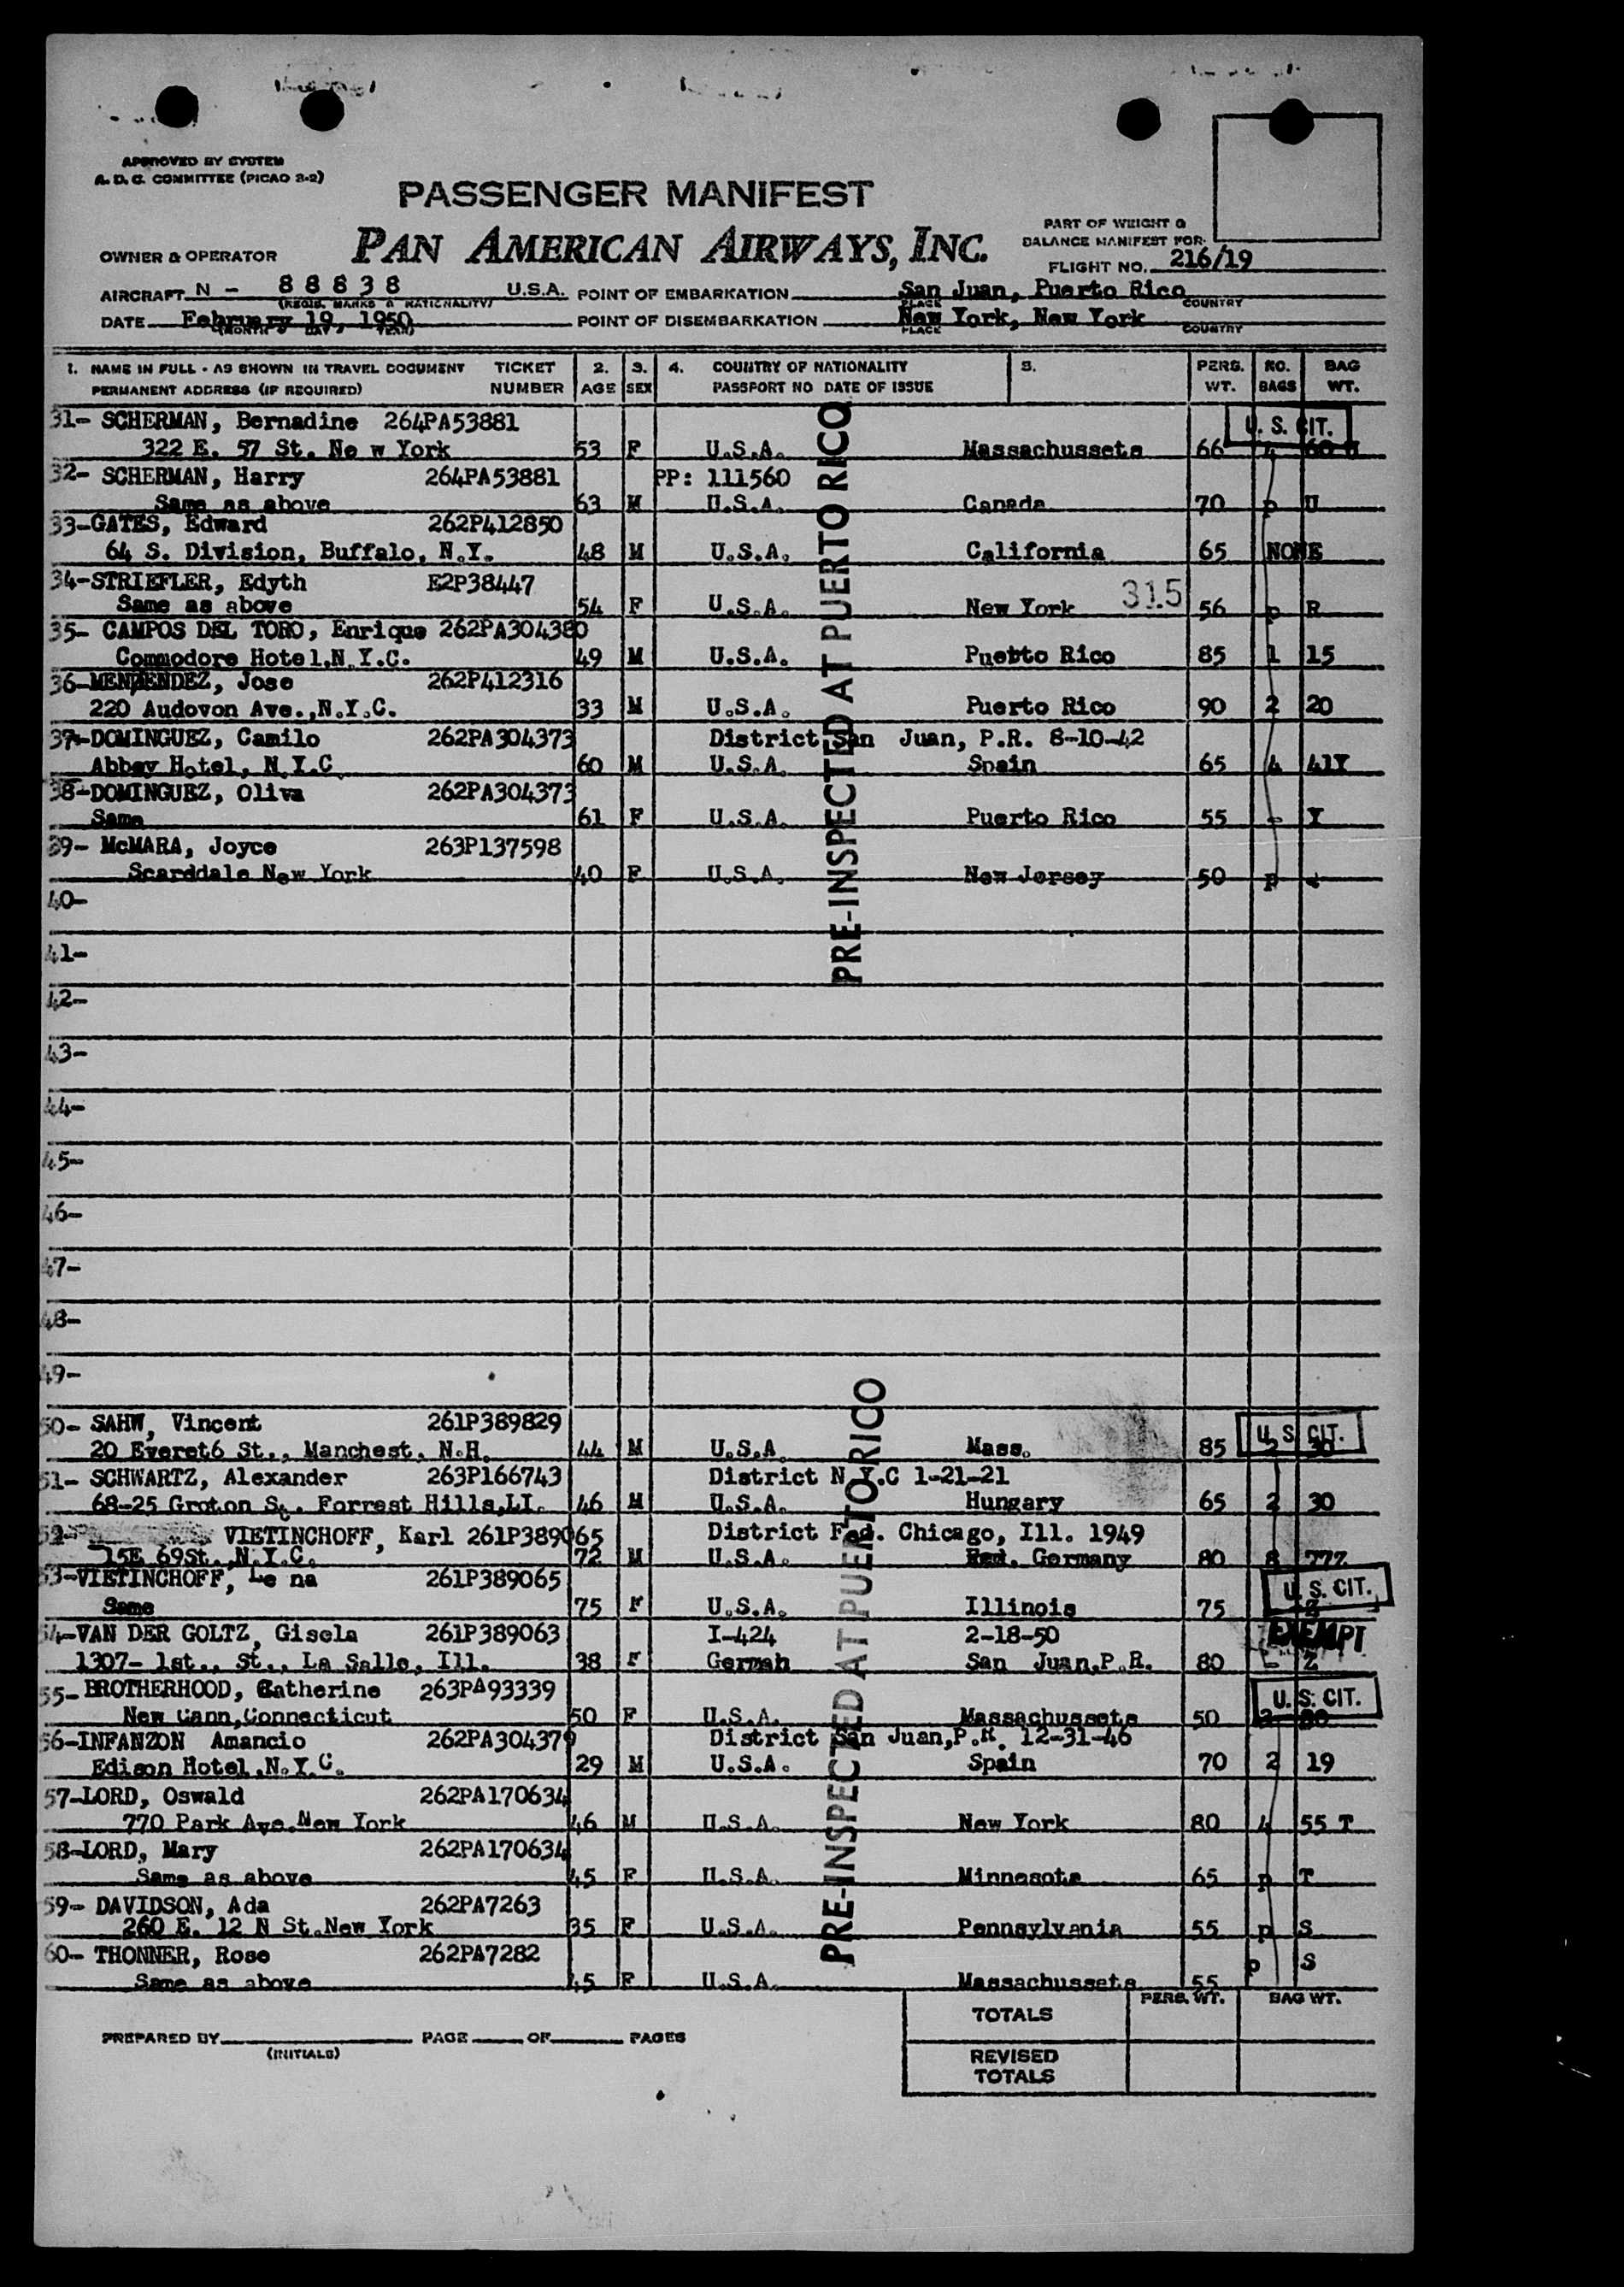 APPROVED BY SYSTEM
A. D. C. COMMITTEE (PICAO 3-2)
PASSENGER MANIFEST
OWNER & OPERATOR PAN AMERICAN AIRWAYS, INC.
PART OF WEIGHT &
BALANCE MANIFEST FOR
FLIGHT NO. 216/19
AIRCRAFT N - 88838 U.S.A. POINT OF EMBARKATION San Juan, Puerto Rico
(REGIS. MARKS & NATIONALITY) PLACE COUNTRY
DATE February 19, 1950 POINT OF DISEMBARKATION New York, New York
(MONTH DAY YEAR) PLACE COUNTRY
1. NAME IN FULL - AS SHOWN IN TRAVEL DOCUMENT TICKET 2. 3. 4. COUNTRY OF NATIONALITY 5. PERS. NO. BAG
PERMANENT ADDRESS (IF REQUIRED) NUMBER AGE SEX PASSPORT NO DATE OF ISSUE WT. BAGS WT.
31- SCHERMAN, Bernadine 264PA53881 U. S. CIT.
322 E. 57 St. Ne w York 53 F U.S.A. Massachussets 66 4 60 U
32- SCHERMAN, Harry 264PA53881 PP: 111560
Same as above 63 M U.S.A. Canada 70 p U
33-GATES, Edward 262P412850
64 S. Division, Buffalo, N.Y. 48 M U.S.A. California 65 NONE
34-STRIEFLER, Edyth E2P38447 315
Same as above 54 F U.S.A. New York 56 p R
35- CAMPOS DEL TORO, Enrique 262PA304380
Commodore Hotel.N.Y.C. 49 M U.S.A. Puebto Rico 85 1 15
36-MENZENDEZ, Jose 262P412316
220 Audovon Ave.,N.Y.C. 33 M U.S.A. Puerto Rico 90 2 20
37-DOMINGUEZ, Camilo 262PA304373 District San Juan, P.R. 8-10-42
Abbey Hotel, N.Y.C 60 M U.S.A. Spain 65 4 41Y
38-DOMINGUEZ, Oliva 262PA304373
Same 61 F U.S.A. Puerto Rico 55 - Y
39- McMARA, Joyce 263P137598
Scarddale New York 40 F U.S.A. New Jersey 50 p
PRE-INSPECTED AT PUERTO RICO
40-
41-
42-
43-
44-
45-
46-
47-
48-
49-
50- SAHW, Vincent 261P389829 U. S. CIT.
20 Everet6 St., Manchest. N.H. 44 M U.S.A. Mass. 85 2 30
51- SCHWARTZ, Alexander 263P166743 District N.Y.C 1-21-21
68-25 Groton St. Forrest Hills,LI. 46 M U.S.A. Hungary 65 2 30
52- VIETINCHOFF, Karl 261P389065 District Fed. Chicago, Ill. 1949
15E 69St. N.Y.C. 72 M U.S.A. Germany 80 8 77Z
53-VIETINCHOFF, Le na 261P389065 U. S. CIT.
Same 75 F U.S.A. Illinois 75 - Z
54-VAN DER GOLTZ, Gisela 261P389063 I-424 2-18-50 EXEMPT
1307- 1st., St., La Salle, Ill. 38 F Germah San Juan,P.R. 80 - Z
55-BROTHERHOOD, Catherine 263PA93339 U. S. CIT.
New Cann,Connecticut 50 F U.S.A. Massachussets 50
56-INFANZON Amancio 262PA304379 District San Juan,P.R. 12-31-46
Edison Hotel.N.Y.C. 29 M U.S.A. Spain 70 2 19
57-LORD, Oswald 262PA170634
770 Park Ave.New York 46 M U.S.A. New York 80 4 55 T
58-LORD, Mary 262PA170634
Same as above 45 F U.S.A. Minnesota 65 p T
59- DAVIDSON, Ada 262PA7263
260 E. 12 N St.New York 35 F U.S.A. Pennsylvania 55 p S
60- THONNER, Rose 262PA7282 p S
Same as above 45 F U.S.A. Massachussets 55
PRE-INSPECTED AT PUERTO RICO
PERS. WT. BAG WT.
TOTALS
PREPARED BY PAGE OF PAGES
(INITIALS)
REVISED
TOTALS